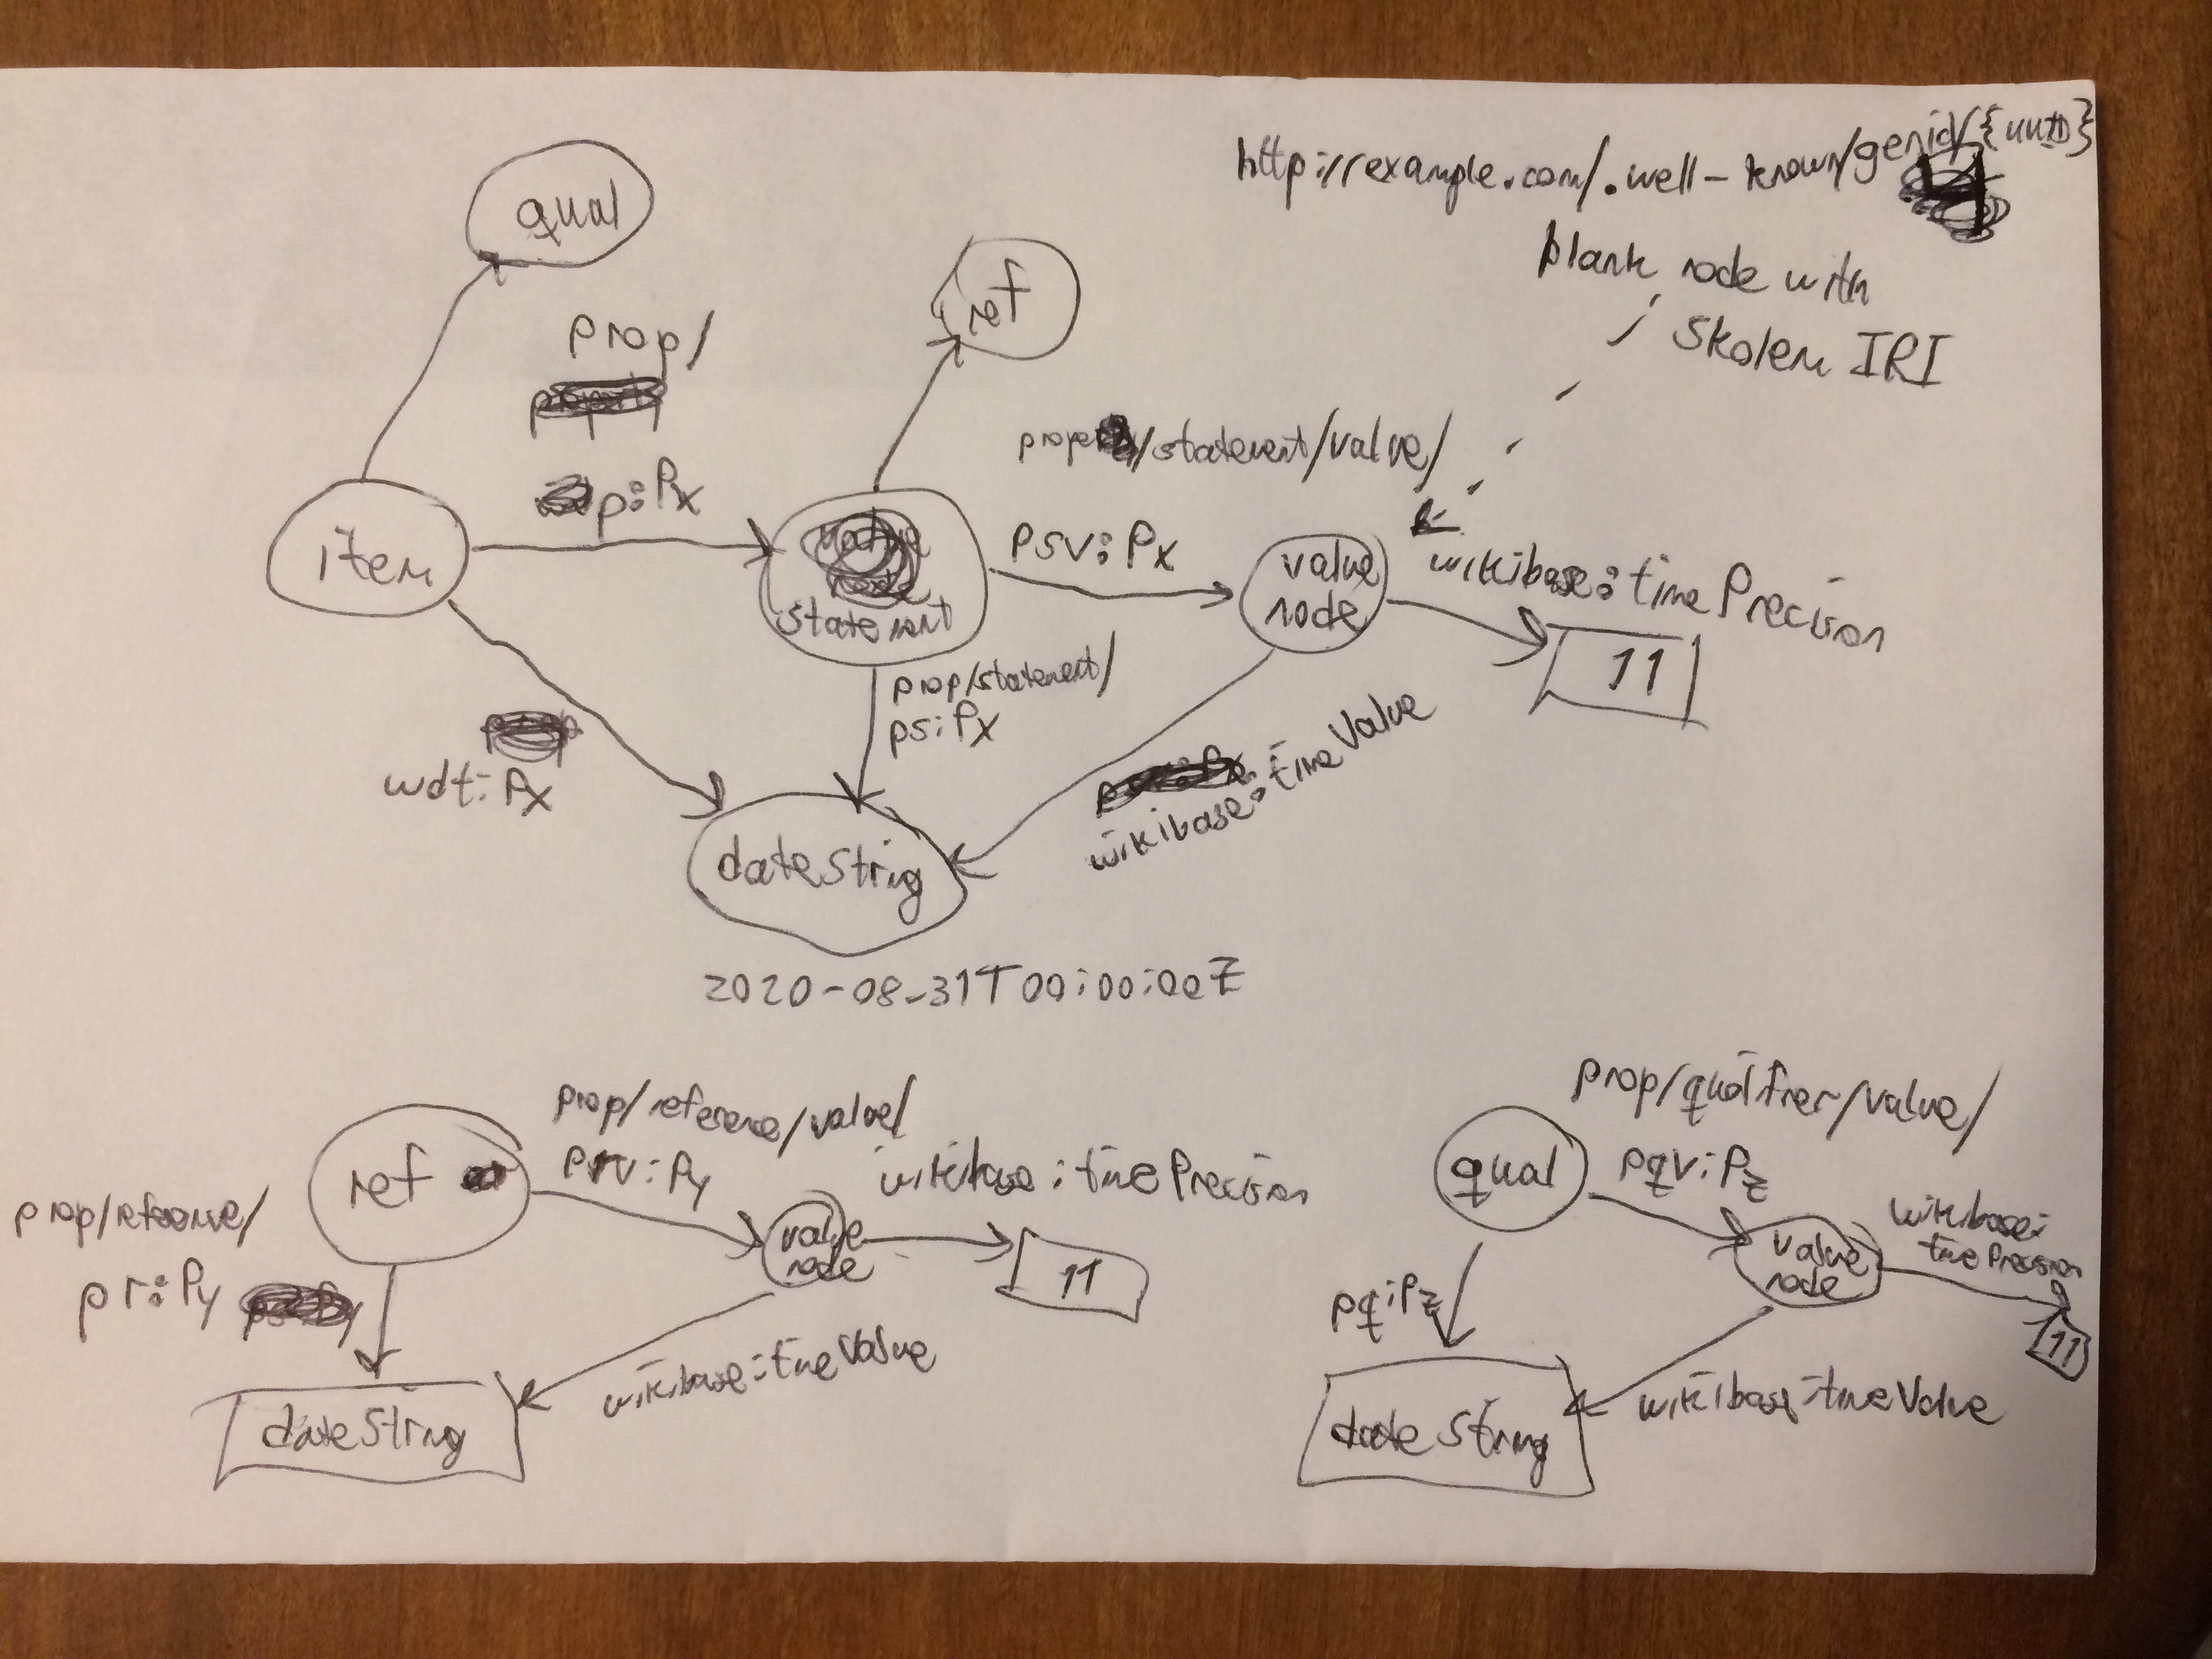 http://example.com/.well-known/genid/{uuID}
blank node with
Skolem IRI
qual
ref
prop/
p:Px
prope/statement/value/
item
statement
psv:Px
value
node
wikibase:timePrecision
11
prop/statement/
ps:Px
wdt:Px
wikibase:timeValue
dateString
2020-08-31T00:00:00Z
prop/reference/value/
prv:Py
ref
wikibase:timePrecision
value
node
11
prop/reference/
pr:Py
wikibase:timeValue
dateString
prop/qualifier/value/
qual
pqv:Pz
wikibase:
timePrecision
value
node
11
pq:Pz
wikibase:timeValue
dateString